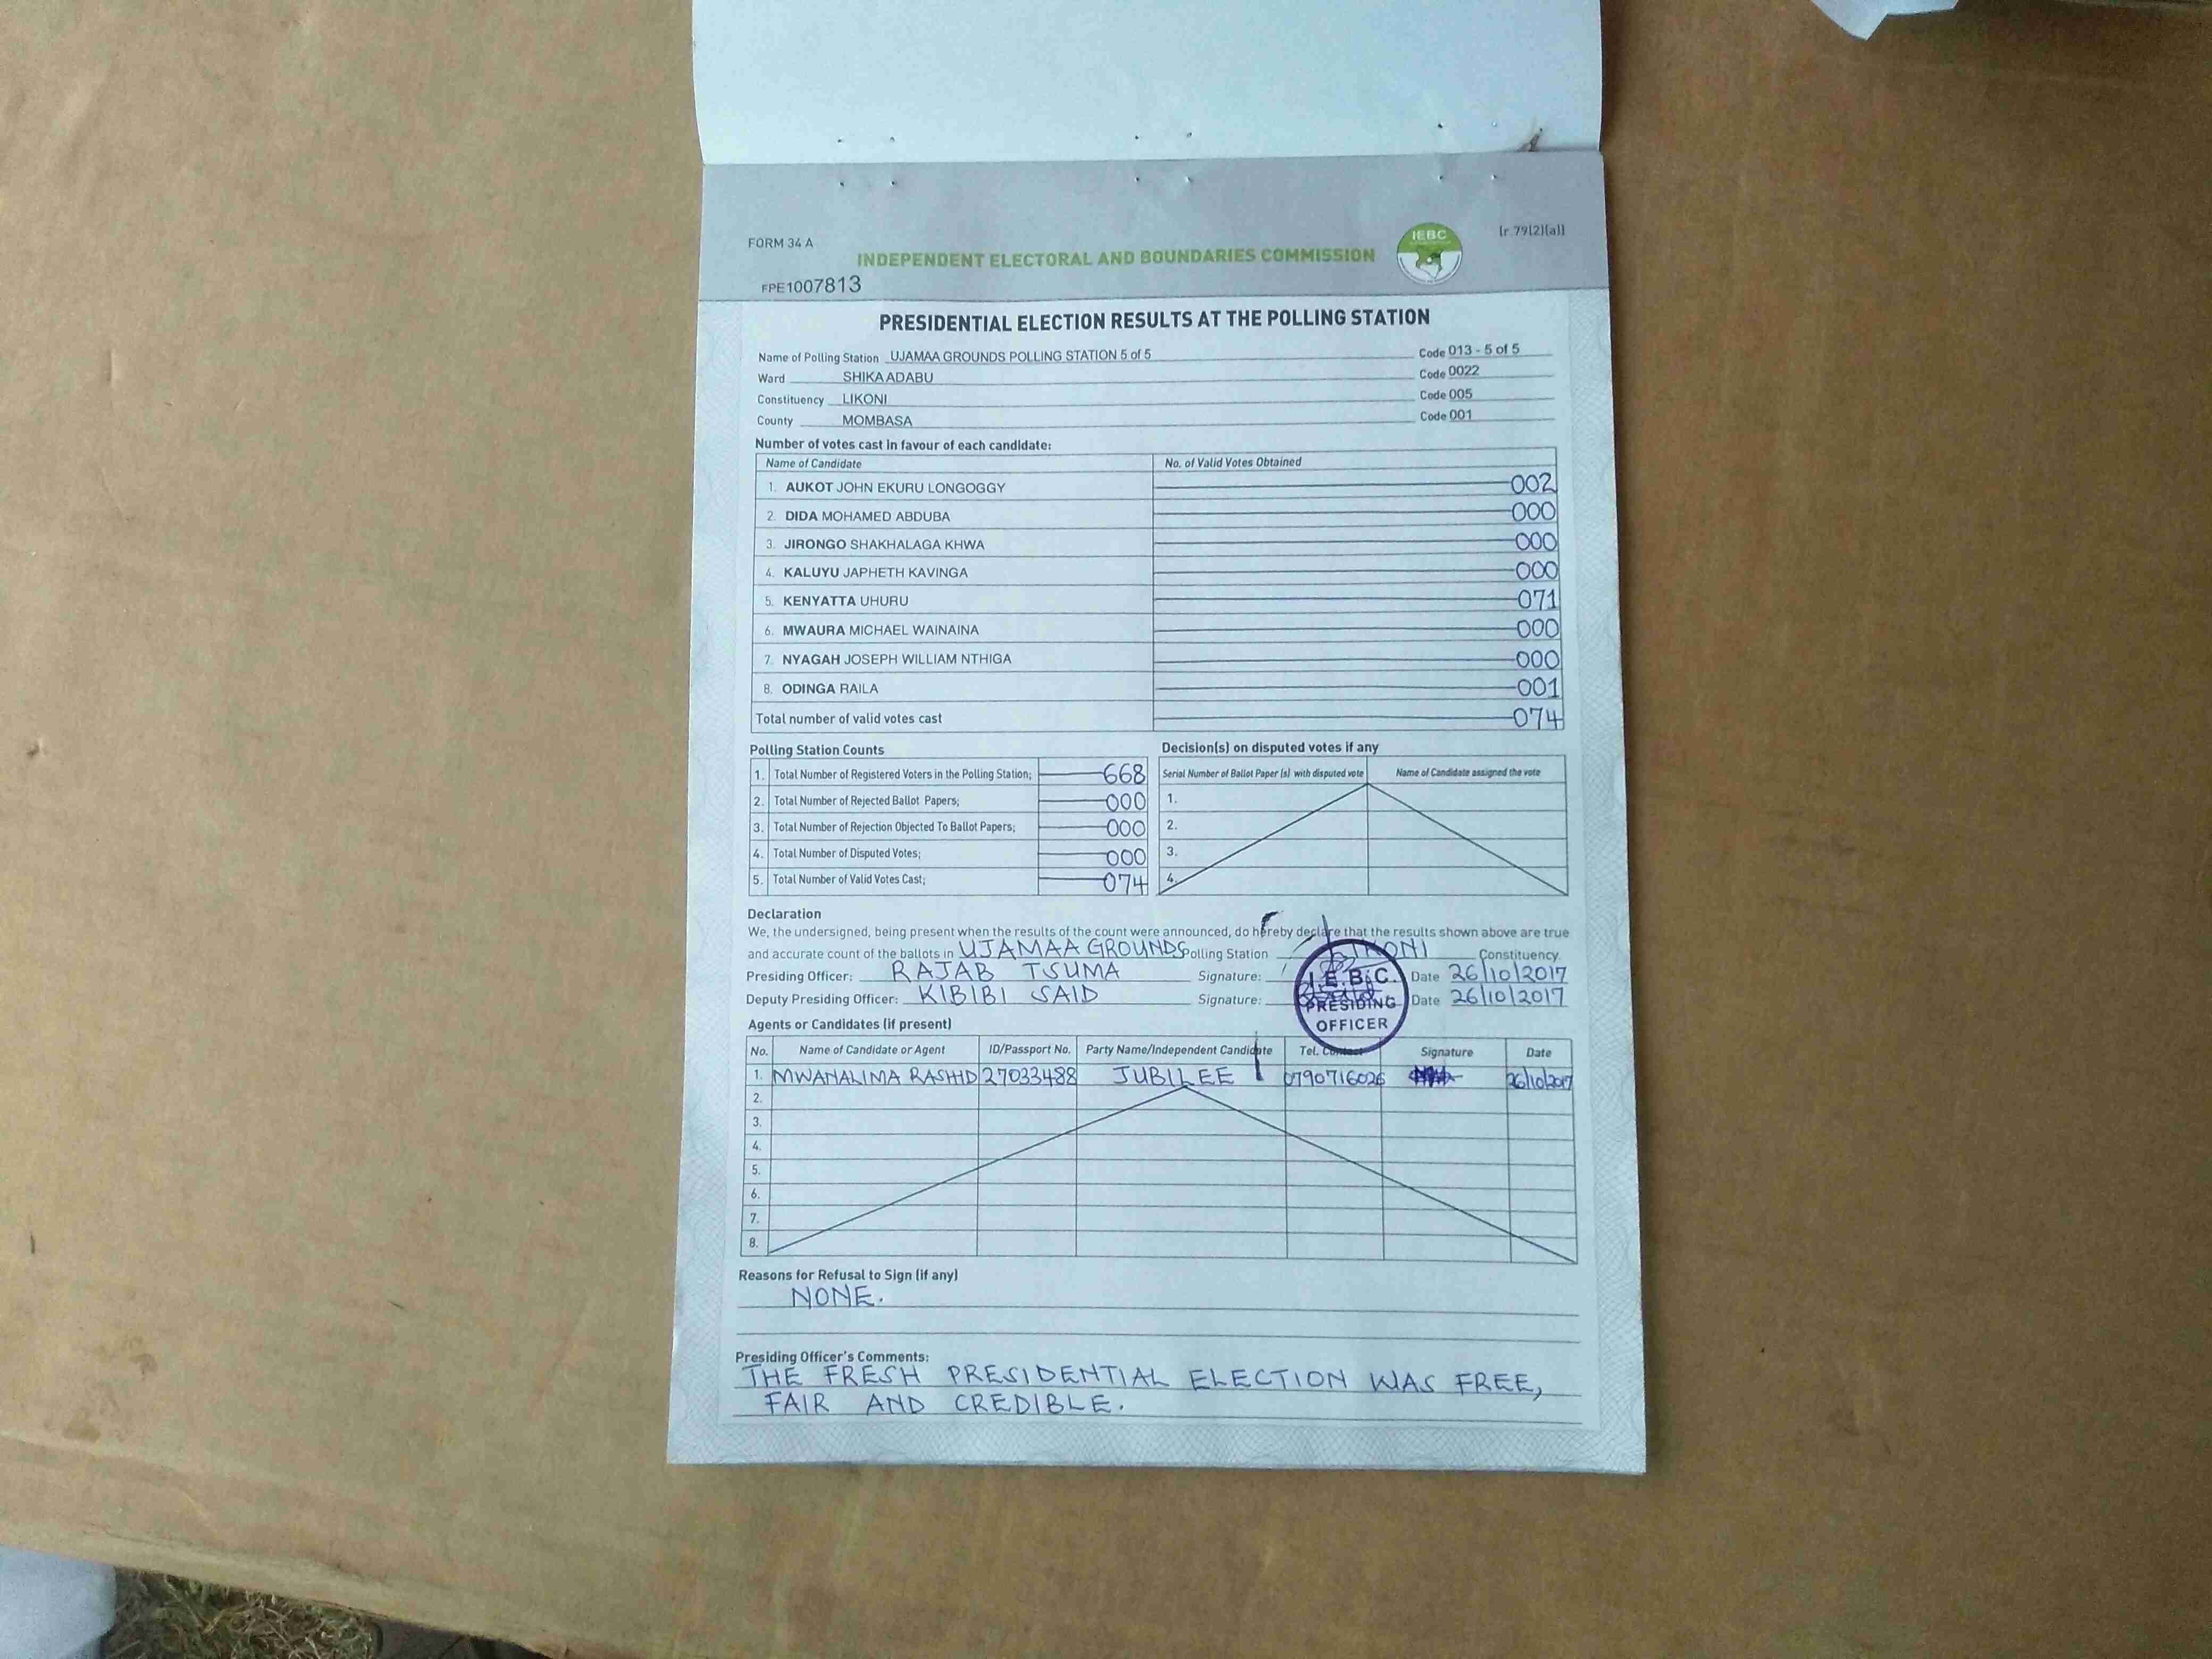 FORM 34 A
(r.79(2)(a))
IEBC
INDEPENDENT ELECTORAL AND BOUNDARIES COMMISSION
FPE1007813
PRESIDENTIAL ELECTION RESULTS AT THE POLLING STATION
Name of Polling Station UJAMAA GROUNDS POLLING STATION 5 of 5 Code 013 - 5 of 5
Ward SHIKAADABU Code 0022
Constituency LIKONI Code 005
County MOMBASA Code 001
Number of votes cast in favour of each candidate:
Name of Candidate No. of Valid Votes Obtained
1. AUKOT JOHN EKURU LONGOGGY 002
2. DIDA MOHAMED ABDUBA 000
3. JIRONGO SHAKHALAGA KHWA 000
4. KALUYU JAPHETH KAVINGA 000
5. KENYATTA UHURU 071
6. MWAURA MICHAEL WAINAINA 000
7. NYAGAH JOSEPH WILLIAM NTHIGA 000
8. ODINGA RAILA 001
Total number of valid votes cast 074
Polling Station Counts
1. Total Number of Registered Voters in the Polling Station; 668
2. Total Number of Rejected Ballot Papers; 000
3. Total Number of Rejection Objected To Ballot Papers; 000
4. Total Number of Disputed Votes; 000
5. Total Number of Valid Votes Cast; 074
Decision(s) on disputed votes if any
Serial Number of Ballot Paper (s) with disputed vote Name of Candidate assigned the vote
1.
2.
3.
4.
Declaration
We, the undersigned, being present when the results of the count were announced, do hereby declare that the results shown above are true
and accurate count of the ballots in UJAMAA GROUNDS Polling Station LIKONI Constituency.
Presiding Officer: RAJAB TSUMA Signature: Date 26/10/2017
Deputy Presiding Officer: KIBIBI SAID Signature: Date 26/10/2017
I.E.B.C.
PRESIDING
OFFICER
Agents or Candidates (if present)
No. Name of Candidate or Agent ID/Passport No. Party Name/Independent Candidate Tel. Contact Signature Date
1. MWANALIMA RASHID 27033488 JUBILEE 0790716026 26/10/2017
2.
3.
4.
5.
6.
7.
8.
Reasons for Refusal to Sign (if any)
NONE.
Presiding Officer's Comments:
THE FRESH PRESIDENTIAL ELECTION WAS FREE,
FAIR AND CREDIBLE.